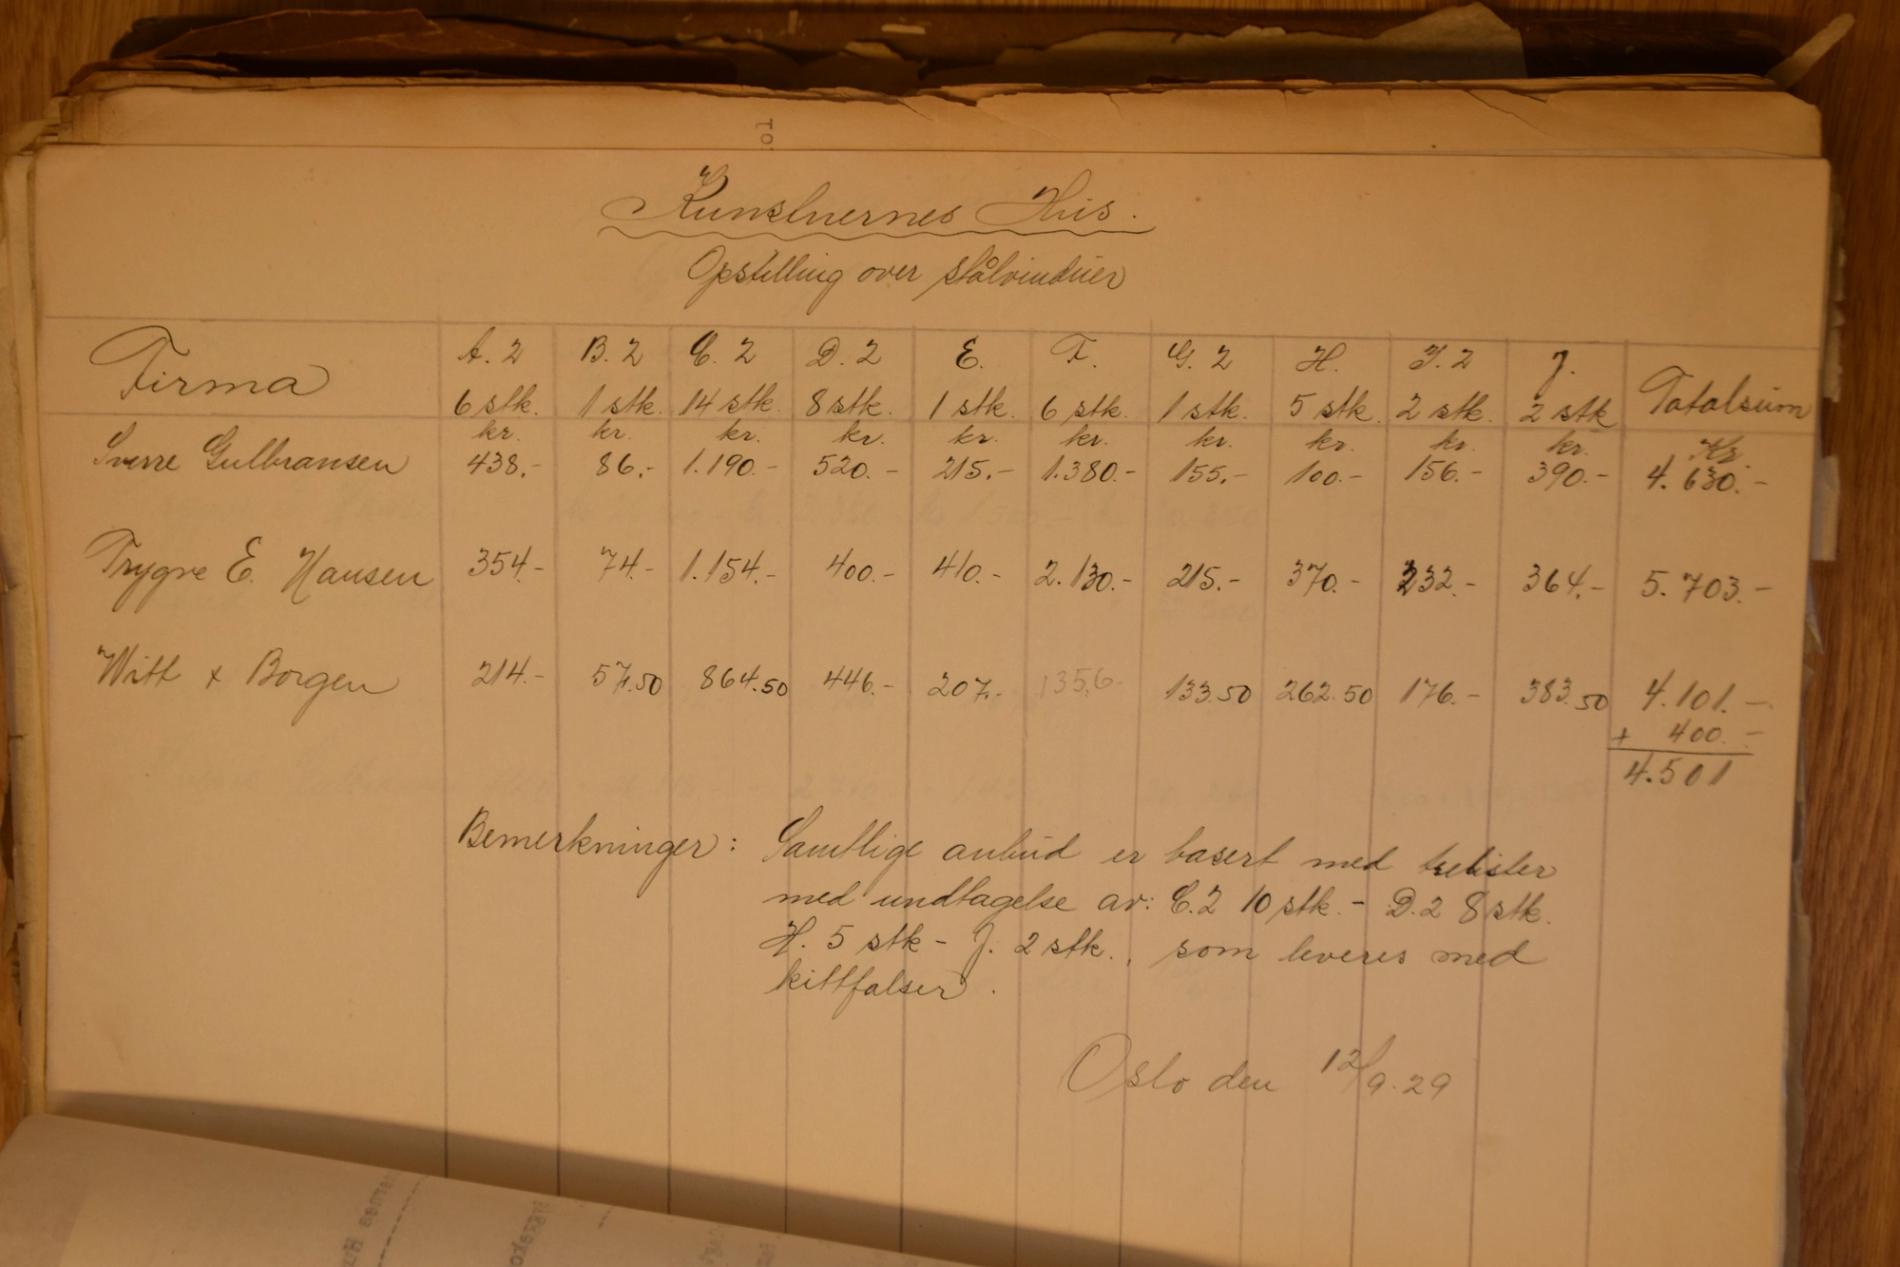 To.
Kunstnernes Hus.
Opstilling over stålvinduer
Firma A.2 B.2 C.2 D.2 E. F. G.2 H. I.2 J. Totalsum
6 stk. 1 stk. 14 stk. 8 stk. 1 stk. 6 stk. 1 stk. 5 stk. 2 stk. 2 stk
kr. kr. kr. kr. kr. kr. kr. kr. kr. kr. Kr.
Sverre Gulbransen 438.- 86.- 1.190.- 520.- 215.- 1.380.- 155.- 100.- 156.- 390.- 4.630.-
Trygve E. Hansen 354.- 74.- 1.154.- 400.- 410.- 2.130.- 215.- 370.- 232.- 364.- 5.703.-
Witt + Borgen 214.- 57.50 864.50 446.- 207.- 1356.- 133.50 262.50 176.- 383.50 4.101.-
+ 400.-
4.501
Bemerkninger: Samtlige anbud er basert med trelister
med undtagelse av: C.2 10 stk. - D.2 8 stk.
H. 5 stk - J. 2 stk., som leveres med
kittfalser.
Oslo den 12/9.29